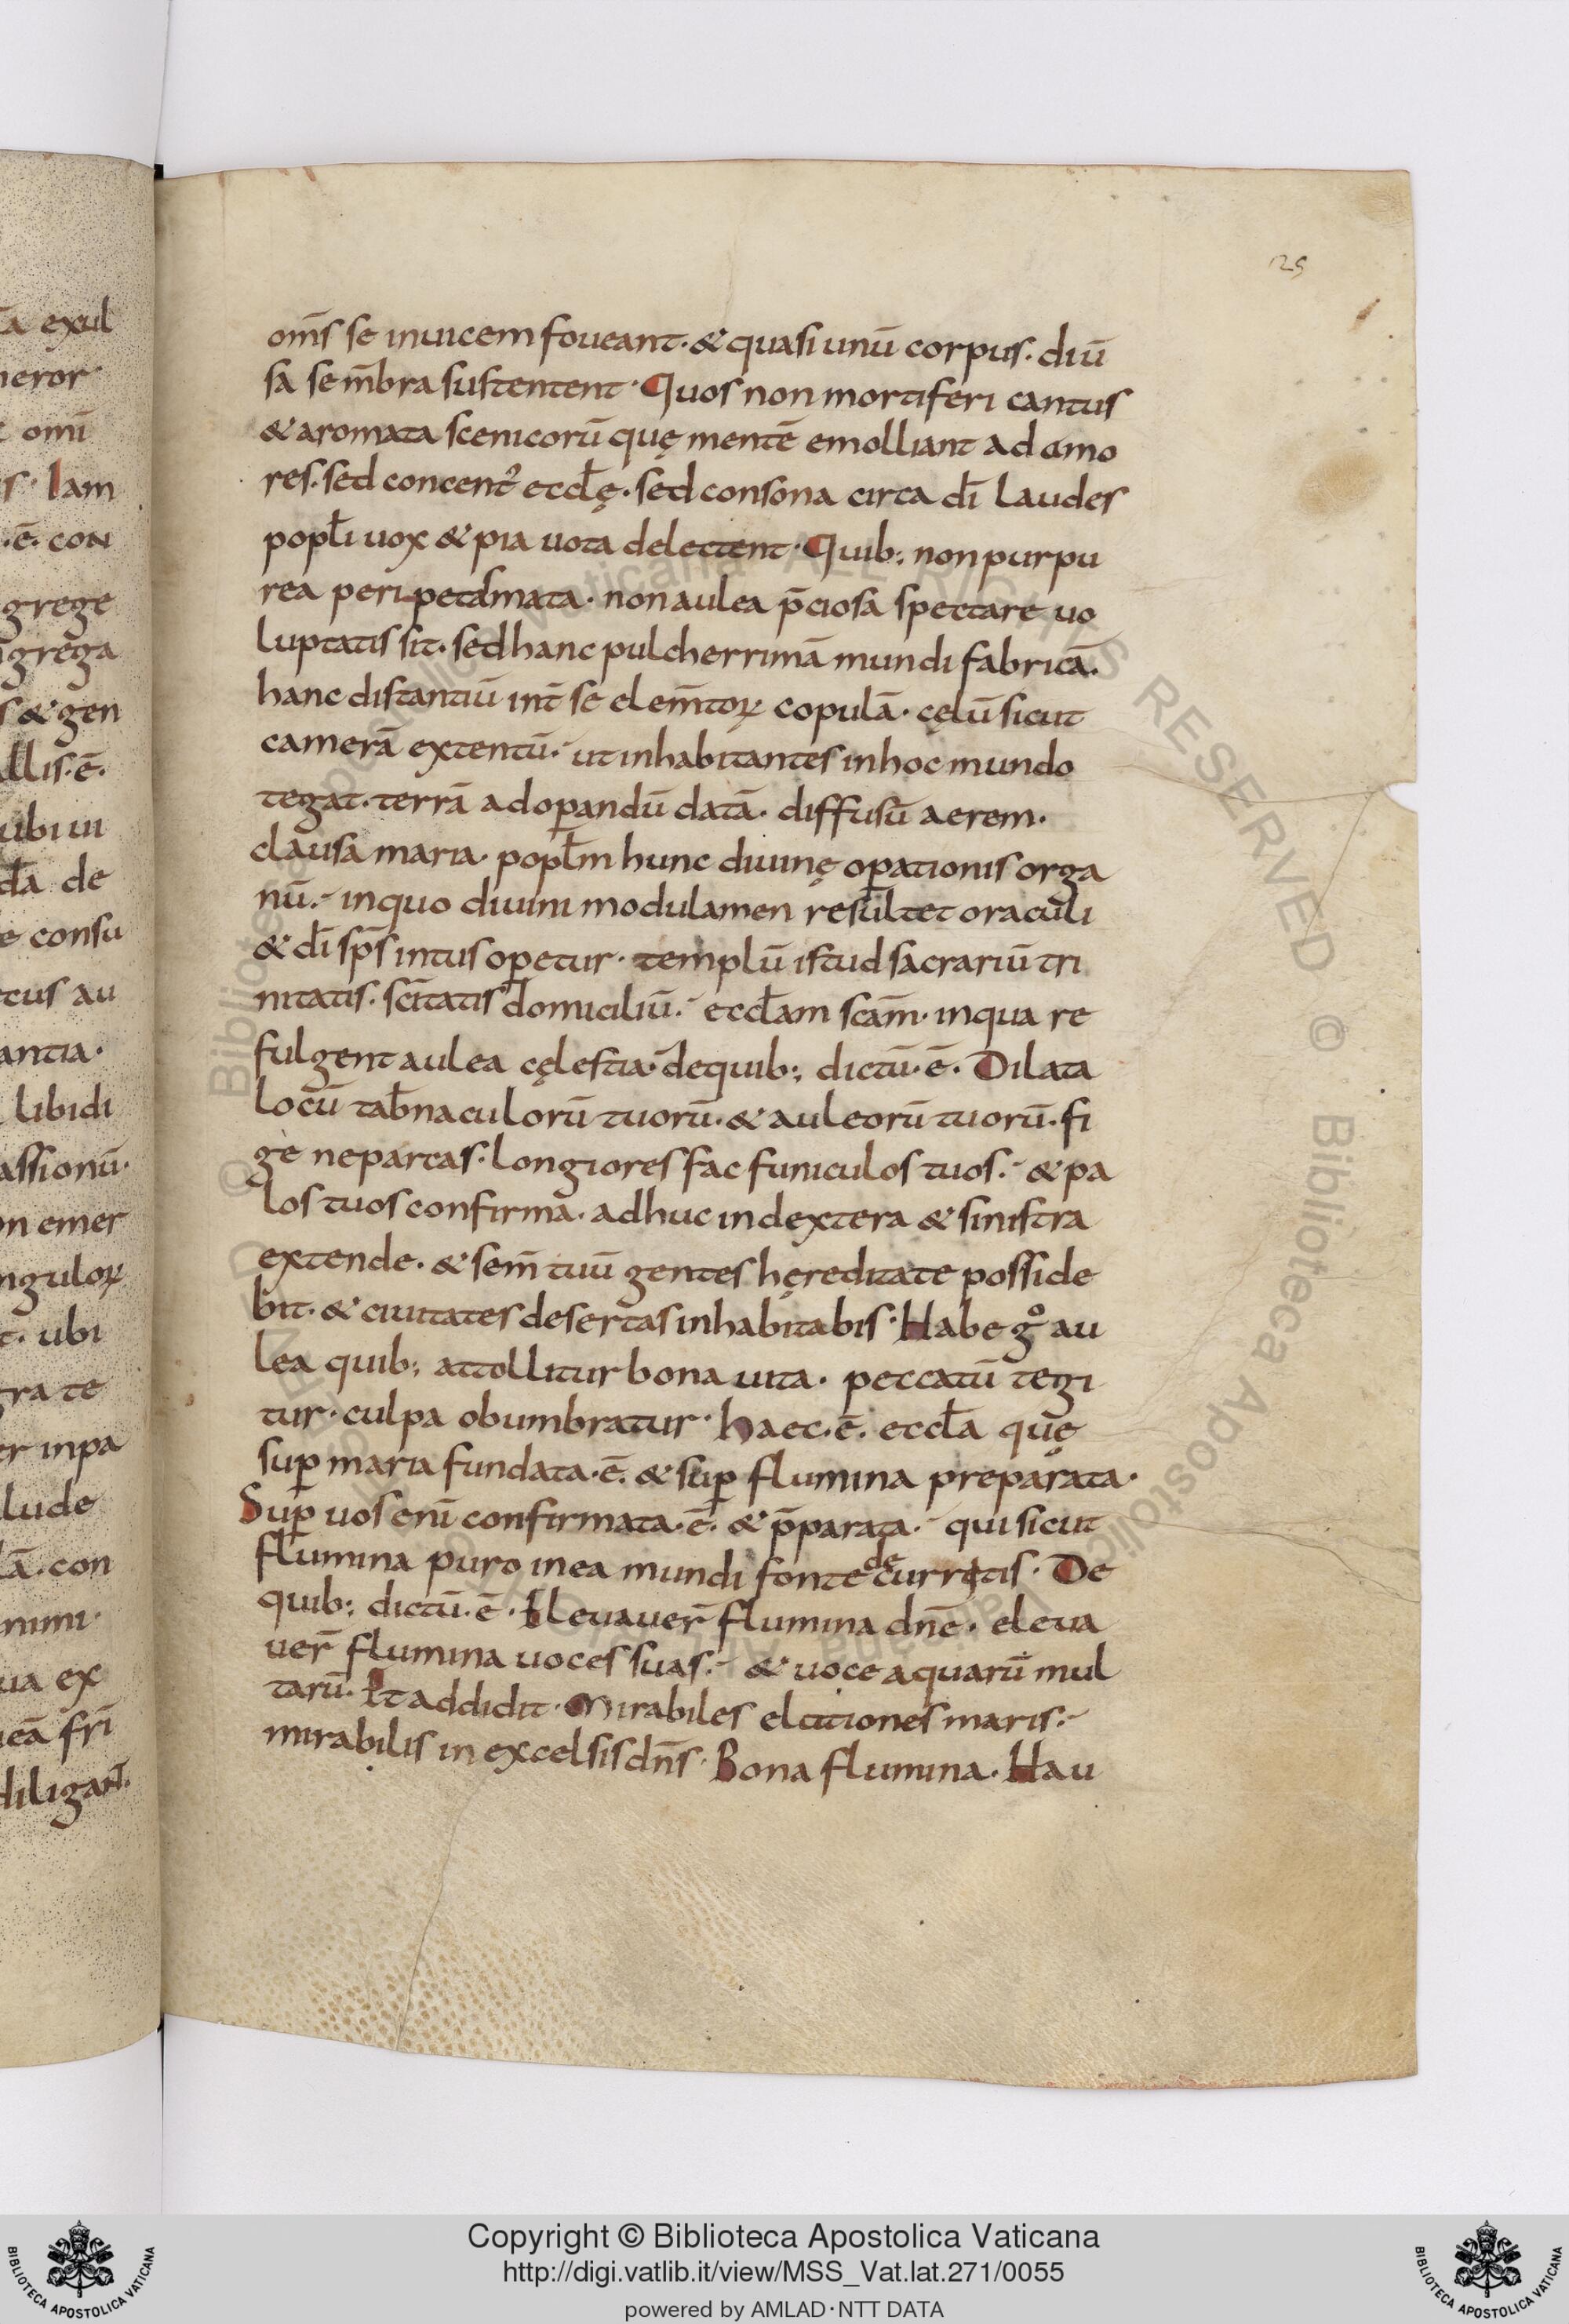 125
om̄s se inuicem foueant· & quasi unū corpus· diū
sa se m̄bra sustentent· Quos non mortiferi cantus
& aromata scenicorū quę mentē emolliant ad amo
res· sed concent᾽ eccl̄ę· sed consona circa dī laudes
popl̄i uox & pia uota delectent· Quib; non purpu
rea peripetasmata· non aulea p̄ciosa spectare uo
luptatis sit· sed hanc pulcherrimā mundi fabricā·
hanc distantiū int̄ se elem̄toꝝ copulā· cęlū sicut
camerā extentū· ut inhabitantes in hoc mundo
tegat· terrā ad oꝑandū datā· diffusū aerem·
clausa maria· popl̄m hunc diuinę oꝑationis orga
nū· in quo diuini modulamen resultet oraculi
& dī sp̄s intus oꝑetur· templū istud sacrariū tri
nitatis· sc̄itatis domiciliū· eccl̄am scām· in qua re
fulgent aulea cęlestia· de quib; dictū·ē· Dilata
locū tab̄naculorū tuorū· & auleorū tuorū· fi
ge ne parcas· longiores fac funiculos tuos· & pa
los tuos confirma· adhuc in dextera & sinistra
extende· & sem̄ tuū gentes hęreditate posside
bit· & ciuitates desertas inhabitabis· Habe gͦ au
lea quib; attollitur bona uita· peccatū tegi
tur· culpa obumbratur· haec·ē· eccl̄a quę
suꝑ maria fundata·ē· & suꝑ flumina preparata·
Suꝑ uos enī confirmata·ē· & p̄parata· qui sicut
flumina puro in ea mundi fonte decurritis· De
quib; dictū·ē· Eleuauer̄ flumina dn̄e· eleua
uer̄ flumina uoces suas· & uoce aquarū mul
tarū· Et addidit· Mirabiles elationes maris·
mirabilis in excelsis dn̄s· Bona flumina· Hau
a exul
neror
omī
Iam
·ē· con
grege
grega
s & gen
allis·ē·
ubi ui
de
e consu
ctus au
antia·
libidi
assionū·
on emer
nguloꝝ
t· ubi
gra te
er in pa
lude
ā· con
nimi·
ua ex
eā frī
diligant·
Copyright © Biblioteca Apostolica Vaticana
http://digi.vatlib.it/view/MSS_Vat.lat.271/0055
powered by AMLAD·NTT DATA
BIBLIOTECA APOSTOLICA VATICANA
BIBLIOTECA APOSTOLICA VATICANA